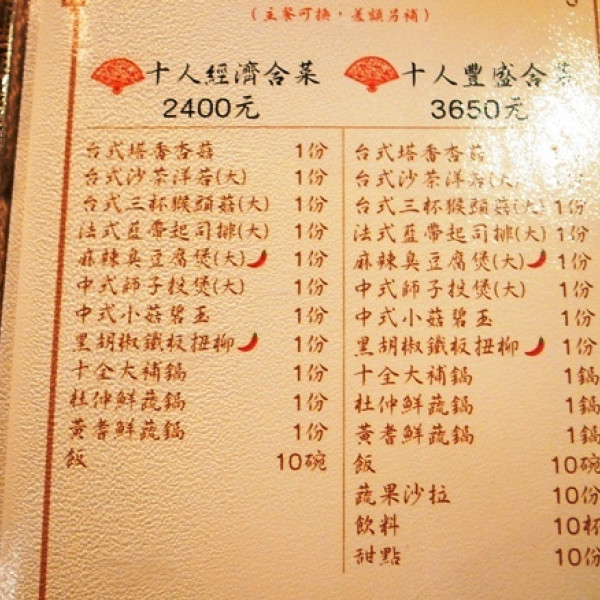 (主餐可換，差額另補)
十人經濟合菜
2400元
台式塔香杏菇 1份
台式沙茶洋菇(大) 1份
台式三杯猴頭菇(大) 1份
法式藍帶起司排(大) 1份
麻辣臭豆腐煲(大) 1份
中式獅子投煲(大) 1份
中式小菇碧玉 1份
黑胡椒鐵板扭柳 1份
十全大補鍋 1份
杜仲鮮蔬鍋 1份
黃耆鮮蔬鍋 1份
飯 10碗
十人豐盛合菜
3650元
台式塔香杏菇 1份
台式沙茶洋菇(大) 1份
台式三杯猴頭菇(大) 1份
法式藍帶起司排(大) 1份
麻辣臭豆腐煲(大) 1份
中式獅子投煲(大) 1份
中式小菇碧玉 1份
黑胡椒鐵板扭柳 1份
十全大補鍋 1鍋
杜仲鮮蔬鍋 1鍋
黃耆鮮蔬鍋 1鍋
飯 10碗
蔬果沙拉 10份
飲料 10杯
甜點 10份